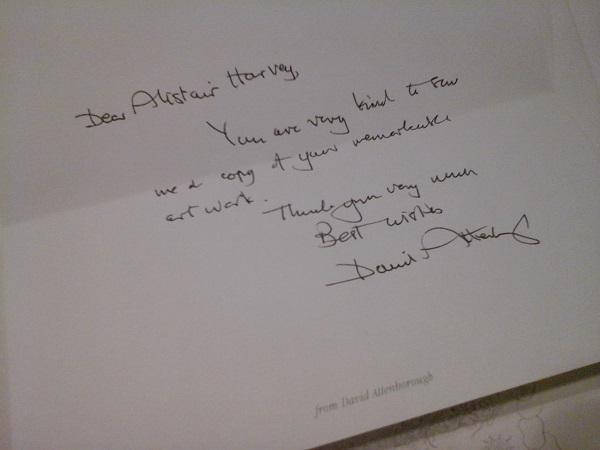 Dear Alistair Harvey,
You are very kind to send
me a copy of your remarkable
art work. Thank you very much
Best wishes
David Attenborough
from David Attenborough